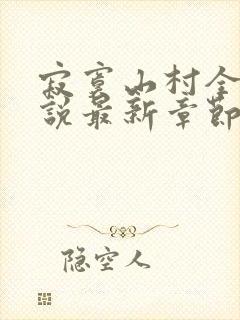 寂寞山村全
說最新章節
隐空人